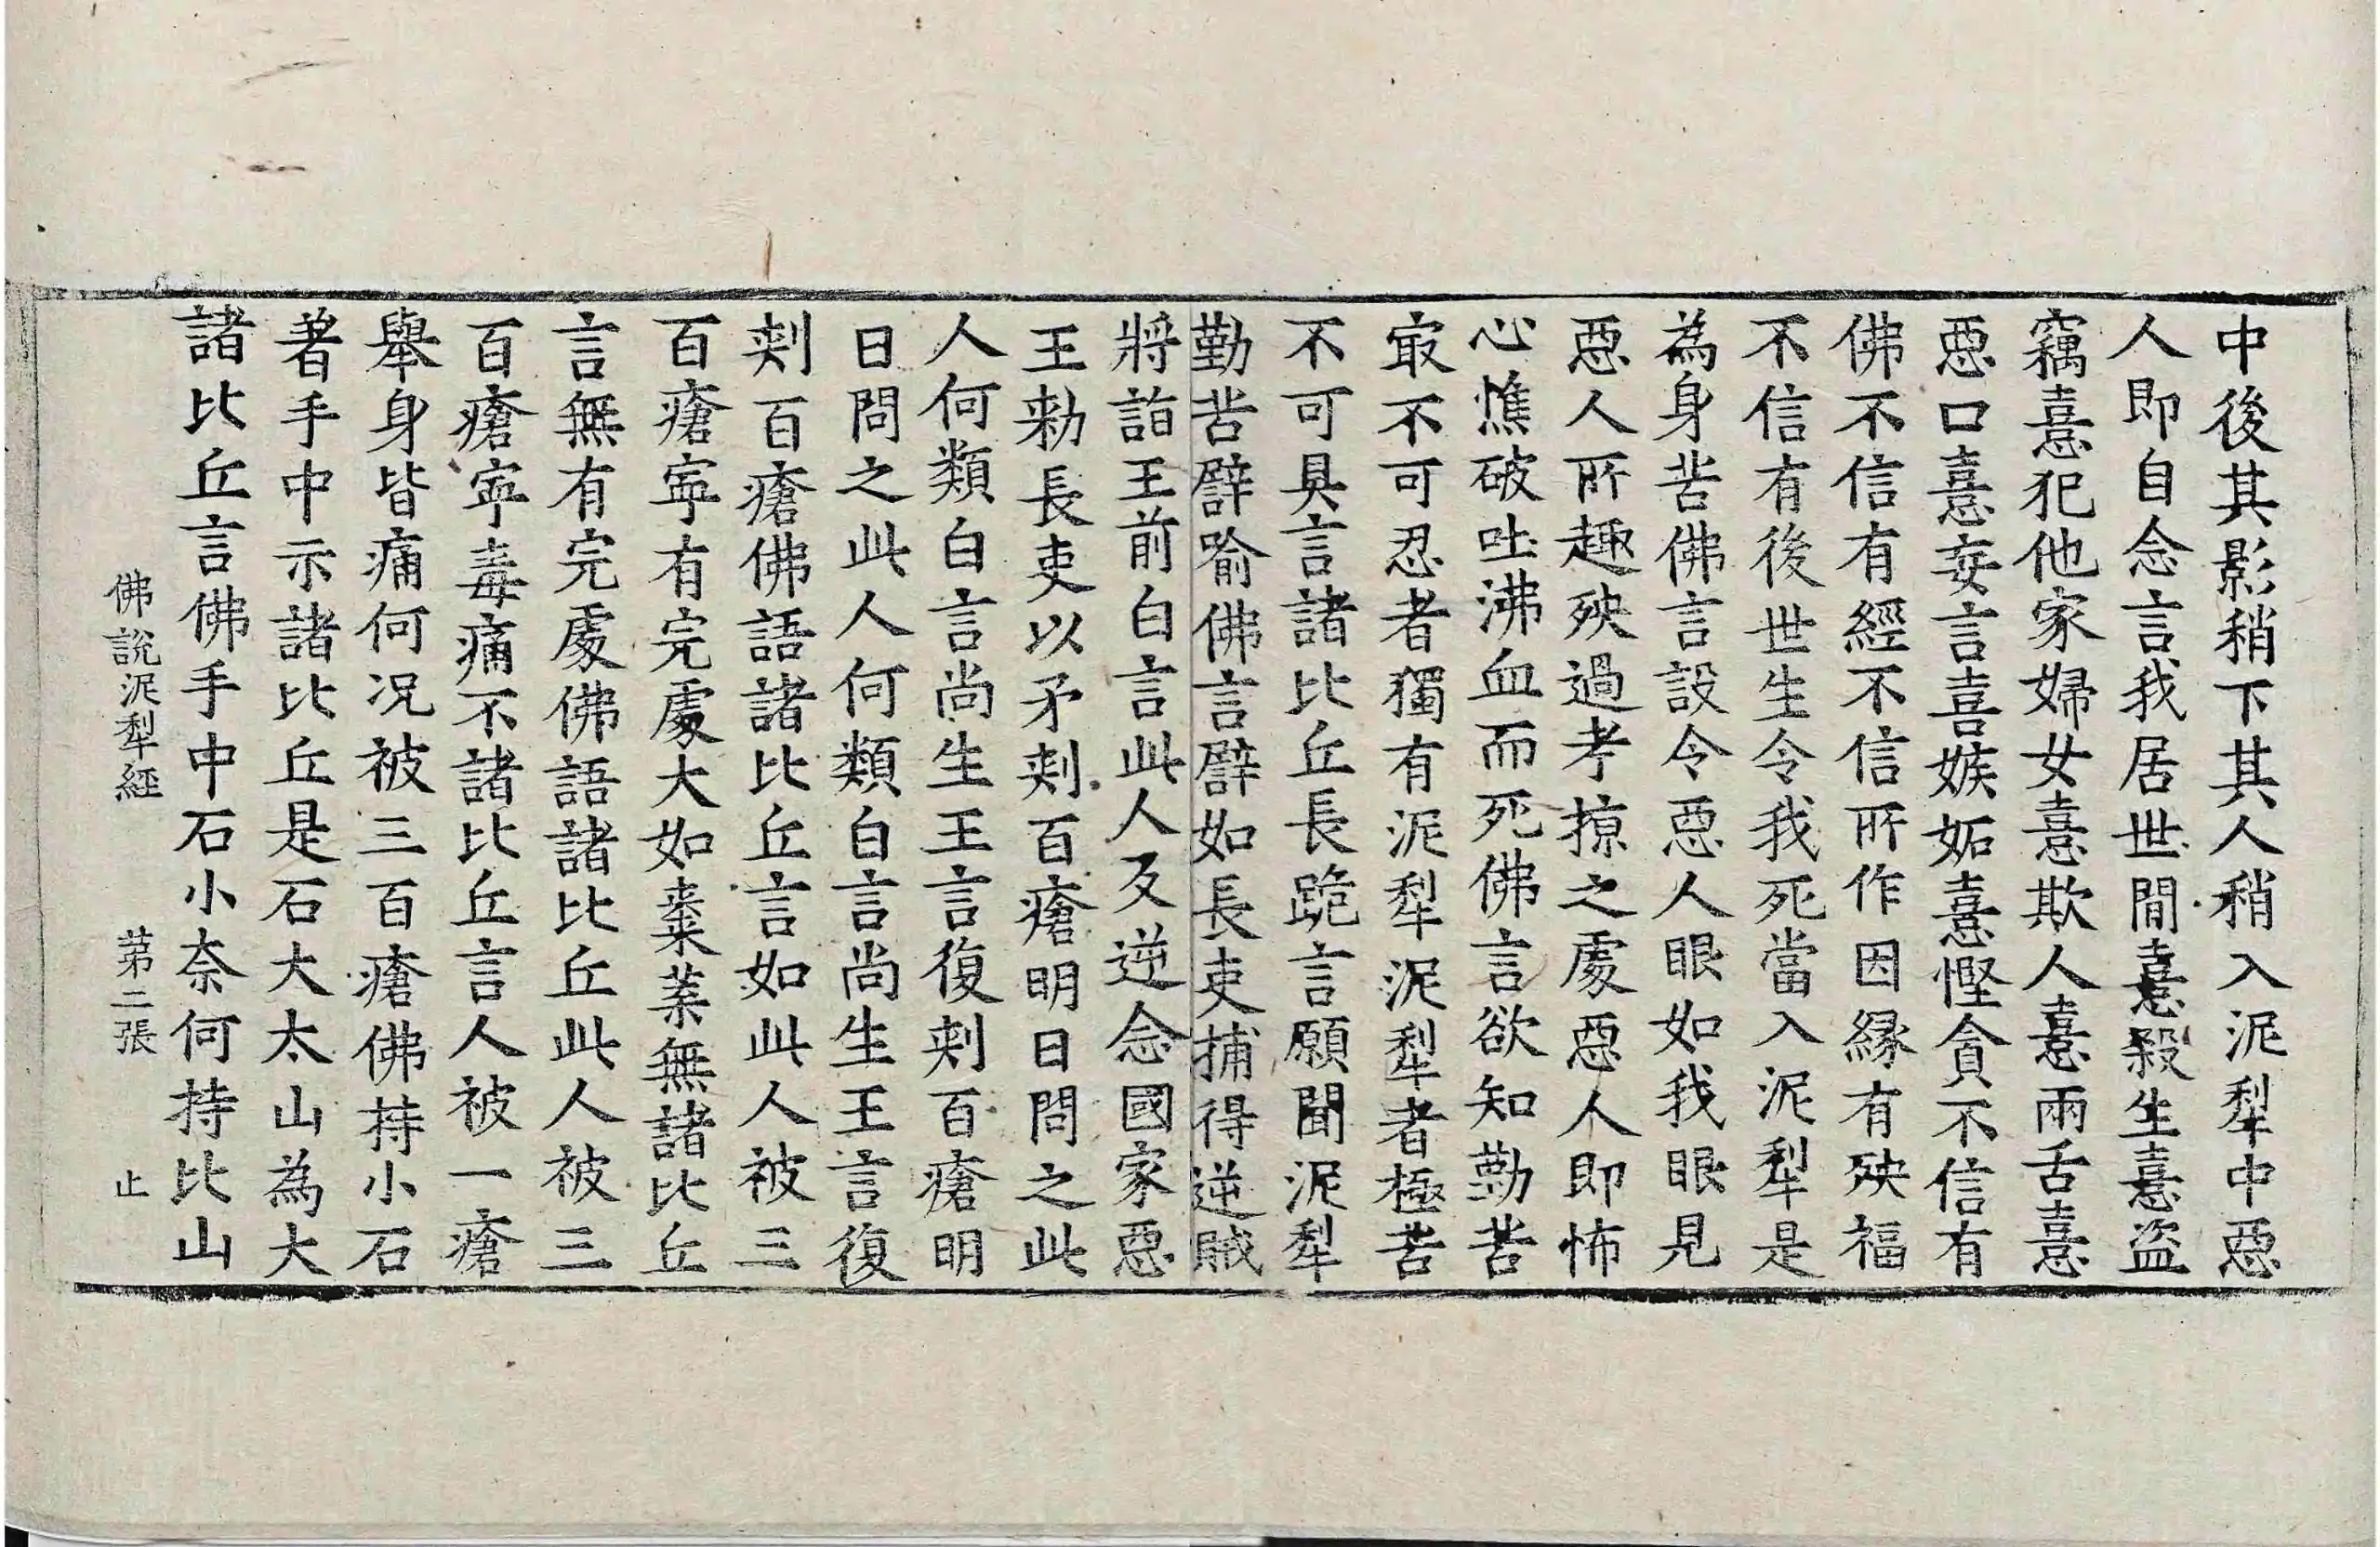 中後其影稍下其人稍入泥犁中惡
人即自念言我居世間憙殺生憙盜
竊憙犯他家婦女憙欺人憙兩舌憙
惡口憙妄言喜嫉妬憙慳貪不信有
佛不信有經不信所作因緣有殃福
不信有後世生令我死當入泥犁是
為身苦佛言設令惡人眼如我眼見
惡人所趣殃過考掠之處惡人即怖
心燋破吐沸血而死佛言欲知勤苦
冣不可忍者獨有泥犁泥犁者極苦
不可具言諸比丘長跪言願聞泥犁
勤苦譬喻佛言譬如長吏捕得逆賊
將詣王前白言此人反逆念國家惡
王勑長吏以矛刾百瘡明日問之此
人何類白言尚生王言復刾百瘡明
日問之此人何類白言尚生王言復
刾百瘡佛語諸比丘言如此人被三
百瘡寧有完處大如棗葉無諸比丘
言無有完處佛語諸比丘此人被三
百瘡寧毒痛不諸比丘言人被一瘡
舉身皆痛何況被三百瘡佛持小石
著手中示諸比丘是石大太山為大
諸比丘言佛手中石小奈何持比山
佛說泥犁經 苐二張 止